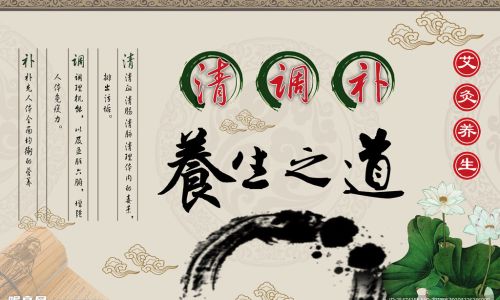 清调补
養生之道
艾灸养生
清 清血清肠清肺清理体内的毒素,
排出污垢。
调 调理机能,以及五脏六腑,增强
人体免疫力。
补 补充人体全面均衡的营养
昵享网